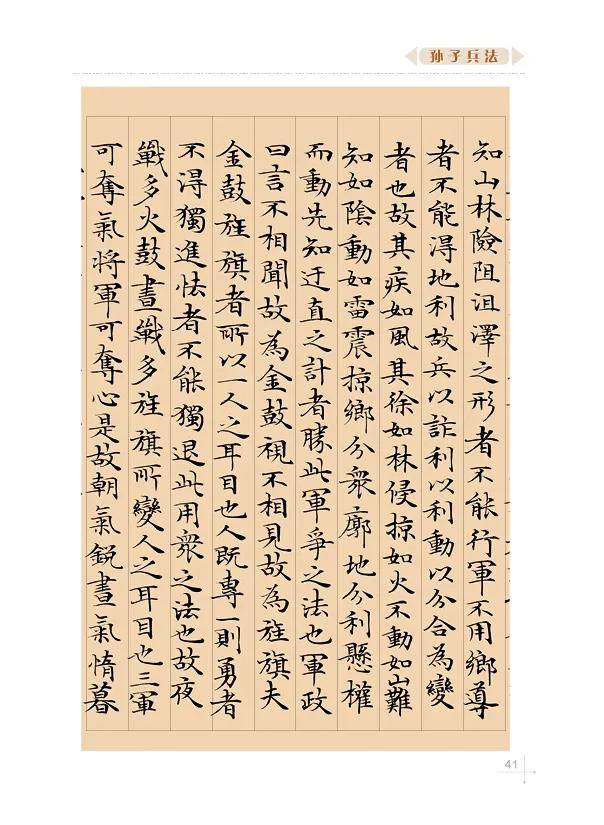 孙子兵法
知山林險阻沮澤之形者不能行軍不用鄉導
者不能得地利故兵以詐利以利動以分合為變
者也故其疾如風其徐如林侵掠如火不動如山難
知如陰動如雷震掠鄉分衆廓地分利懸權
而動先知迂直之計者勝此軍爭之法也軍政
曰言不相聞故為金鼓視不相見故為旌旗夫
金鼓旌旗者所以一人之耳目也人既專一則勇者
不得獨進怯者不能獨退此用衆之法也故夜
戰多火鼓晝戰多旌旗所變人之耳目也三軍
可奪氣將軍可奪心是故朝氣銳晝氣惰暮
41